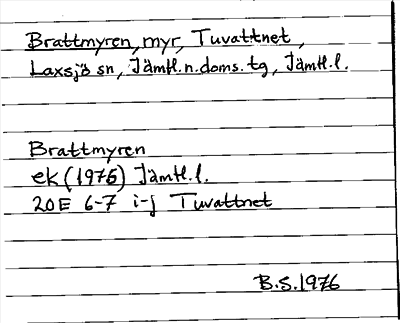 Brattmyren, myr, Tuvattnet,
Laxsjö sn, Jämtl.n.doms.tg, Jämtl.l.
Brattmyren
ek (1975) Jämtl.l.
20E 6-7 i-j Tuvattnet
B.S.1976